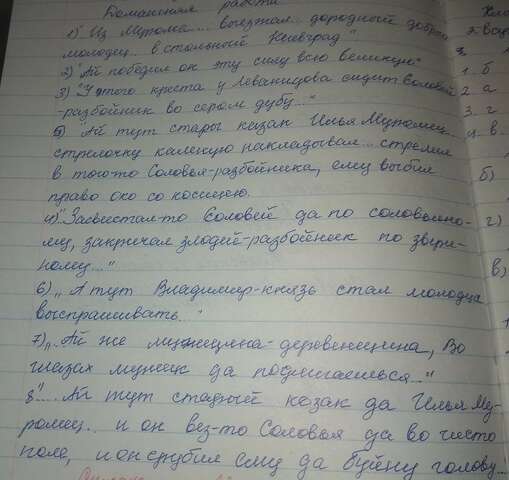 Домашняя работа
1) "Из Мурома... выезжал дородный добрый
молодец.. в стольный Киевград"
2) "Ай победил он эту силу всю великую"
3) "У того креста у Леванидова сидит Соловей
-разбойник во сыром дубу..."
5) "Ай тут старый казак Илья Муромец..
стрелочку каленую накладывал... стрелил
в того-то Соловья-разбойника, ему выбил
право око со косицею.
4) "Засвистал-то Соловей да по соловьино-
му, закричал злодей-разбойник по звери-
ному..."
6) „А тут Владимир-князь стал молодца
выспрашивать.."
7) „Ай же мужичина-деревенщина, Во
глазах мужик да подлыгаешься..."
8".... Ай тут старый козак да Илья Му-
ромец.. и он вез-то Соловья да во чисто
поле, и он срубил ему да буйну голову...
1. б
2 а
3. г
4. в.
б)
г)
в)